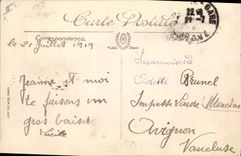 Carte Postale
GARE
Correspondance
le 21 Juillet 1919
Jeanne et moi
te faisons un
gros baiser
Lucile
Mademoiselle
Odette Brunel
Impasse
Avignon
Vaucluse